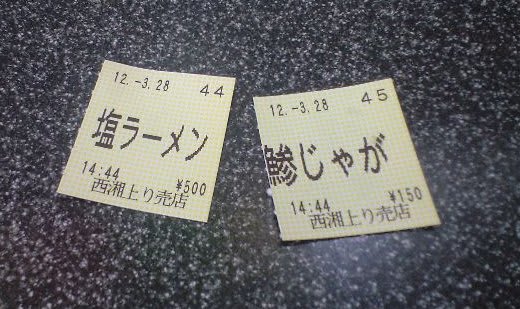 12.-3.28 44
塩ラーメン
14:44 ¥500
西湘上り売店
12.-3.28 45
鯵じゃが
14:44 ¥150
西湘上り売店